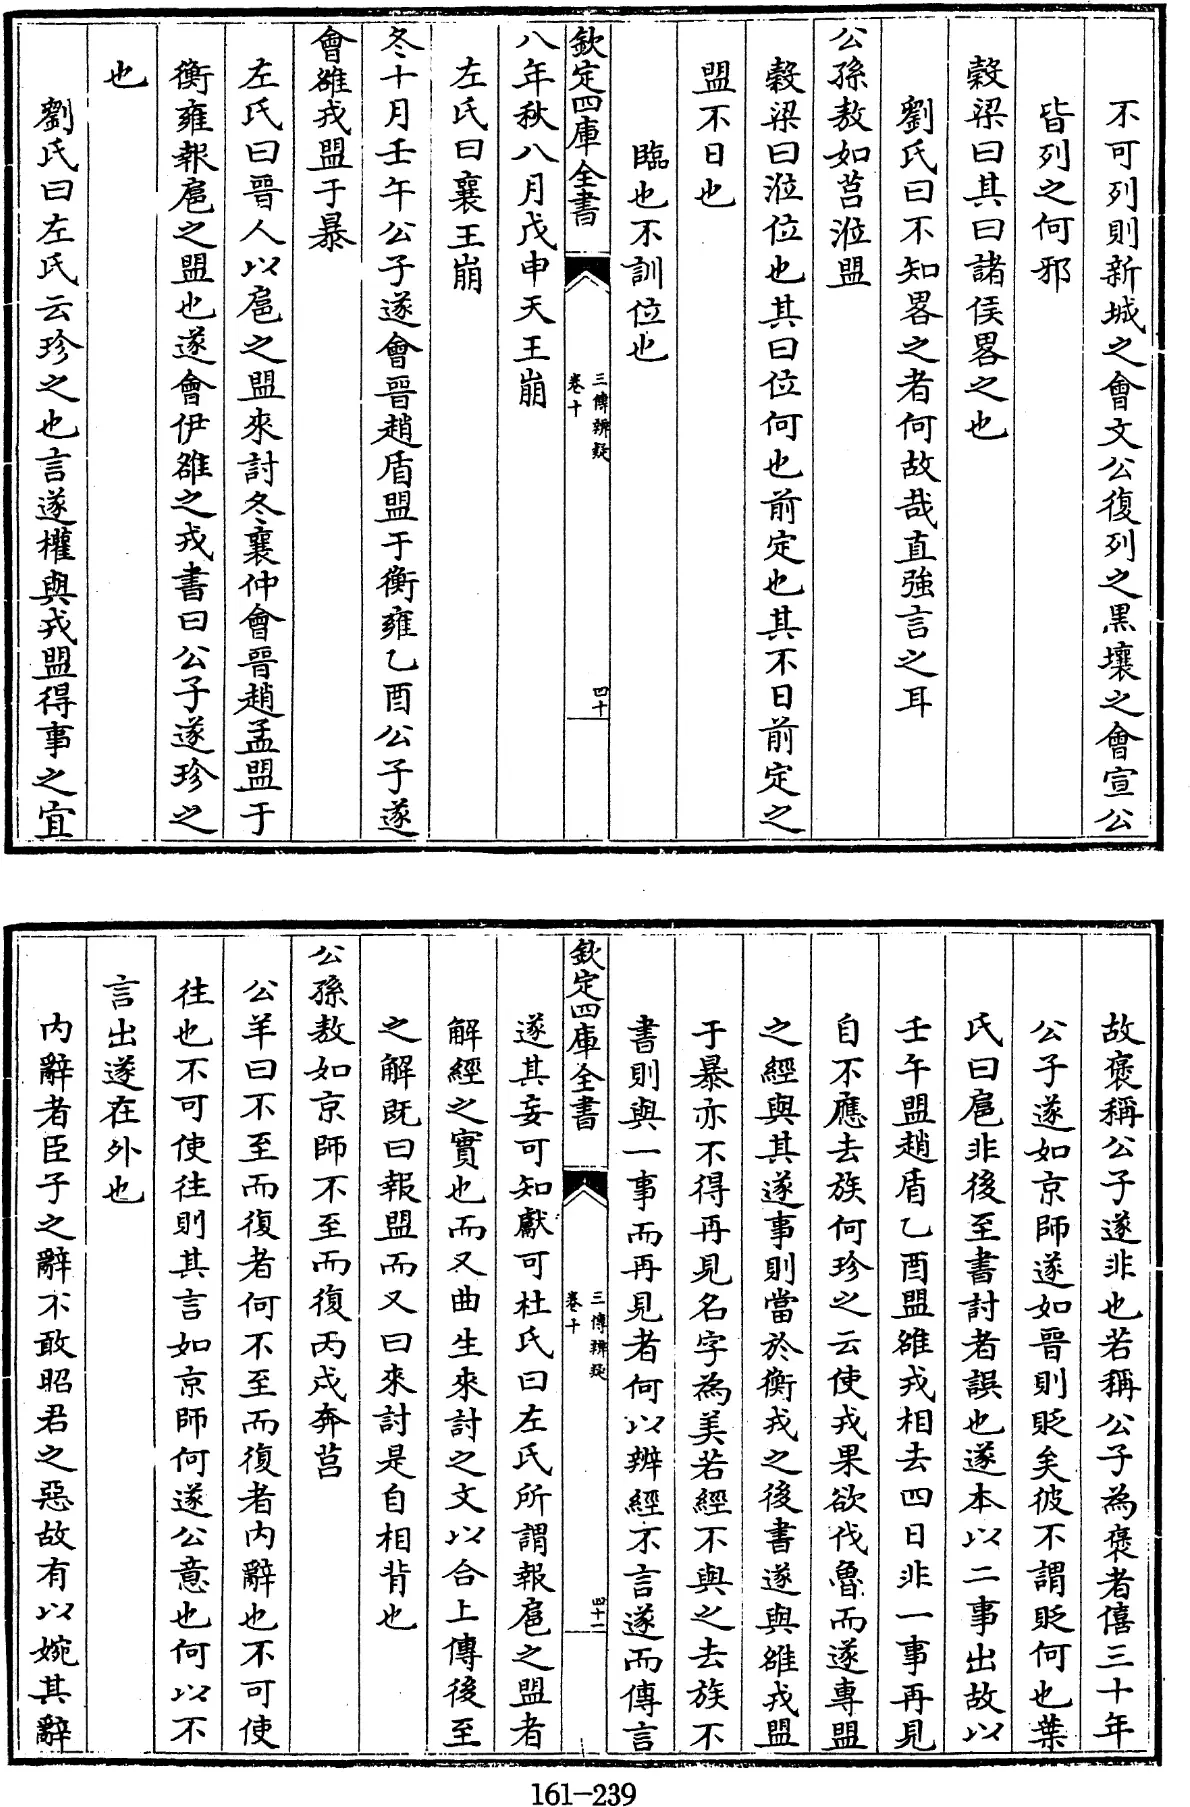 不可列則新城之會文公復列之黑壤之會宣公
皆列之何邪
穀梁曰其曰諸侯畧之也
劉氏曰不知畧之者何故哉直強言之耳
公孫敖如莒涖盟
穀梁曰涖位也其曰位何也前定也其不日前定之
盟不日也
臨也不訓位也
欽定四庫全書
三傳辨疑
卷十
四十
八年秋八月戊申天王崩
左氏曰襄王崩
冬十月壬午公子遂會晉趙盾盟于衡雍乙酉公子遂
會雒戎盟于暴
左氏曰晉人以扈之盟來討冬襄仲會晉趙孟盟于
衡雍報扈之盟也遂會伊雒之戎書曰公子遂珍之
也
劉氏曰左氏云珍之也言遂權與戎盟得事之宜
故襃稱公子遂非也若稱公子為襃者僖三十年
公子遂如京師遂如晉則貶矣彼不謂貶何也葉
氏曰扈非後至書討者誤也遂本以二事出故以
壬午盟趙盾乙酉盟雒戎相去四日非一事再見
自不應去族何珍之云使戎果欲伐魯而遂專盟
之經與其遂事則當於衡戎之後書遂與雒戎盟
于暴亦不得再見名字為美若經不與之去族不
書則與一事而再見者何以辨經不言遂而傳言
欽定四庫全書
三傳辨疑
卷十
四十一
遂其妄可知獻可杜氏曰左氏所謂報扈之盟者
解經之實也而又曲生來討之文以合上傳後至
之解既曰報盟而又曰來討是自相背也
公孫敖如京師不至而復丙戌奔莒
公羊曰不至而復者何不至而復者內辭也不可使
往也不可使往則其言如京師何遂公意也何以不
言出遂在外也
內辭者臣子之辭不敢昭君之惡故有以婉其辭
161-239